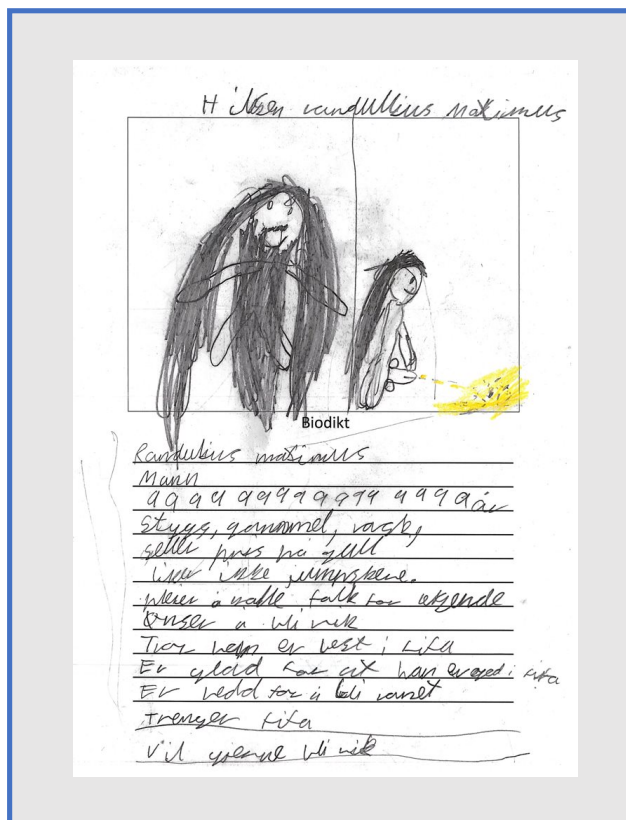 Hilsen randulius maximus
Biodikt
Randulius maximus
Mann
99999999999999999 år
Stygg, gammel, 
selle piss på gull
liker ikke
å kalle folk for
Ønser å bli rik
Tror hann er best i fifa
Er glad for at han er god i fifa
Er redd for å bli ranet
Trenger fifa
Vil gjenne bli rik